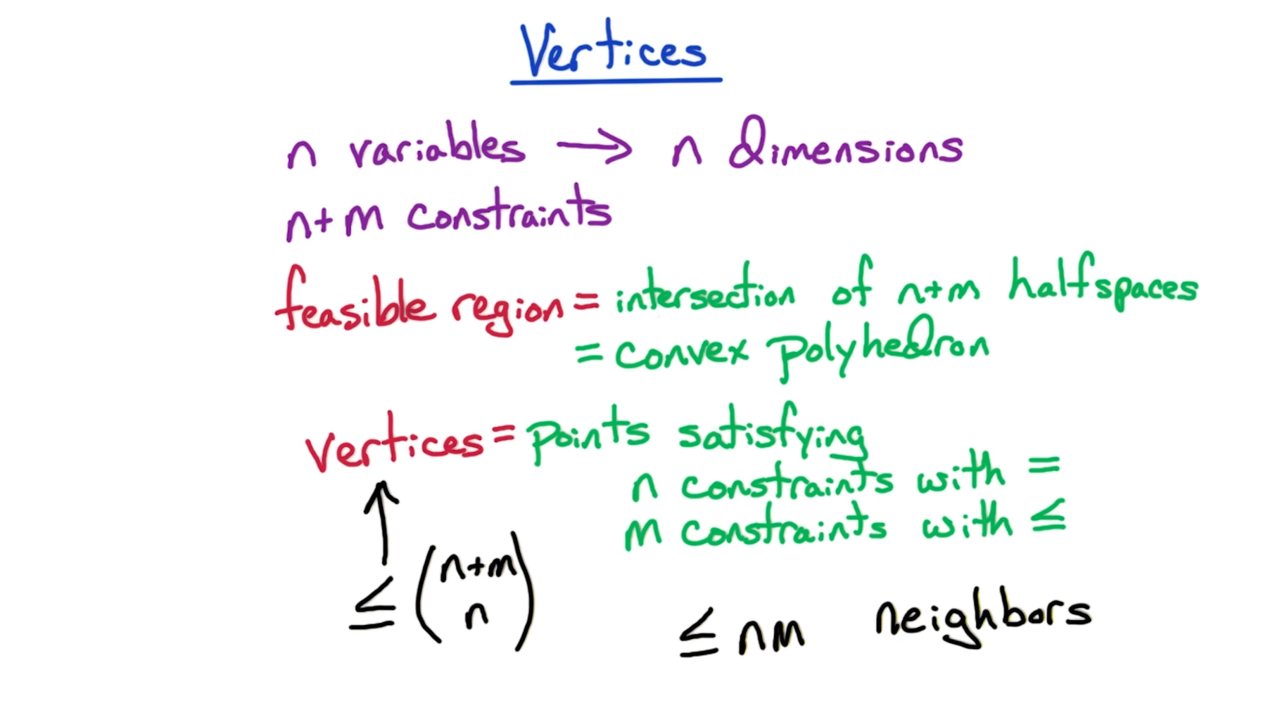 Vertices
n variables → n dimensions
n+m constraints
feasible region = intersection of n+m halfspaces
= convex polyhedron
vertices = points satisfying
n constraints with =
m constraints with ≤
↑
≤ (n+m
n)
≤ nm neighbors